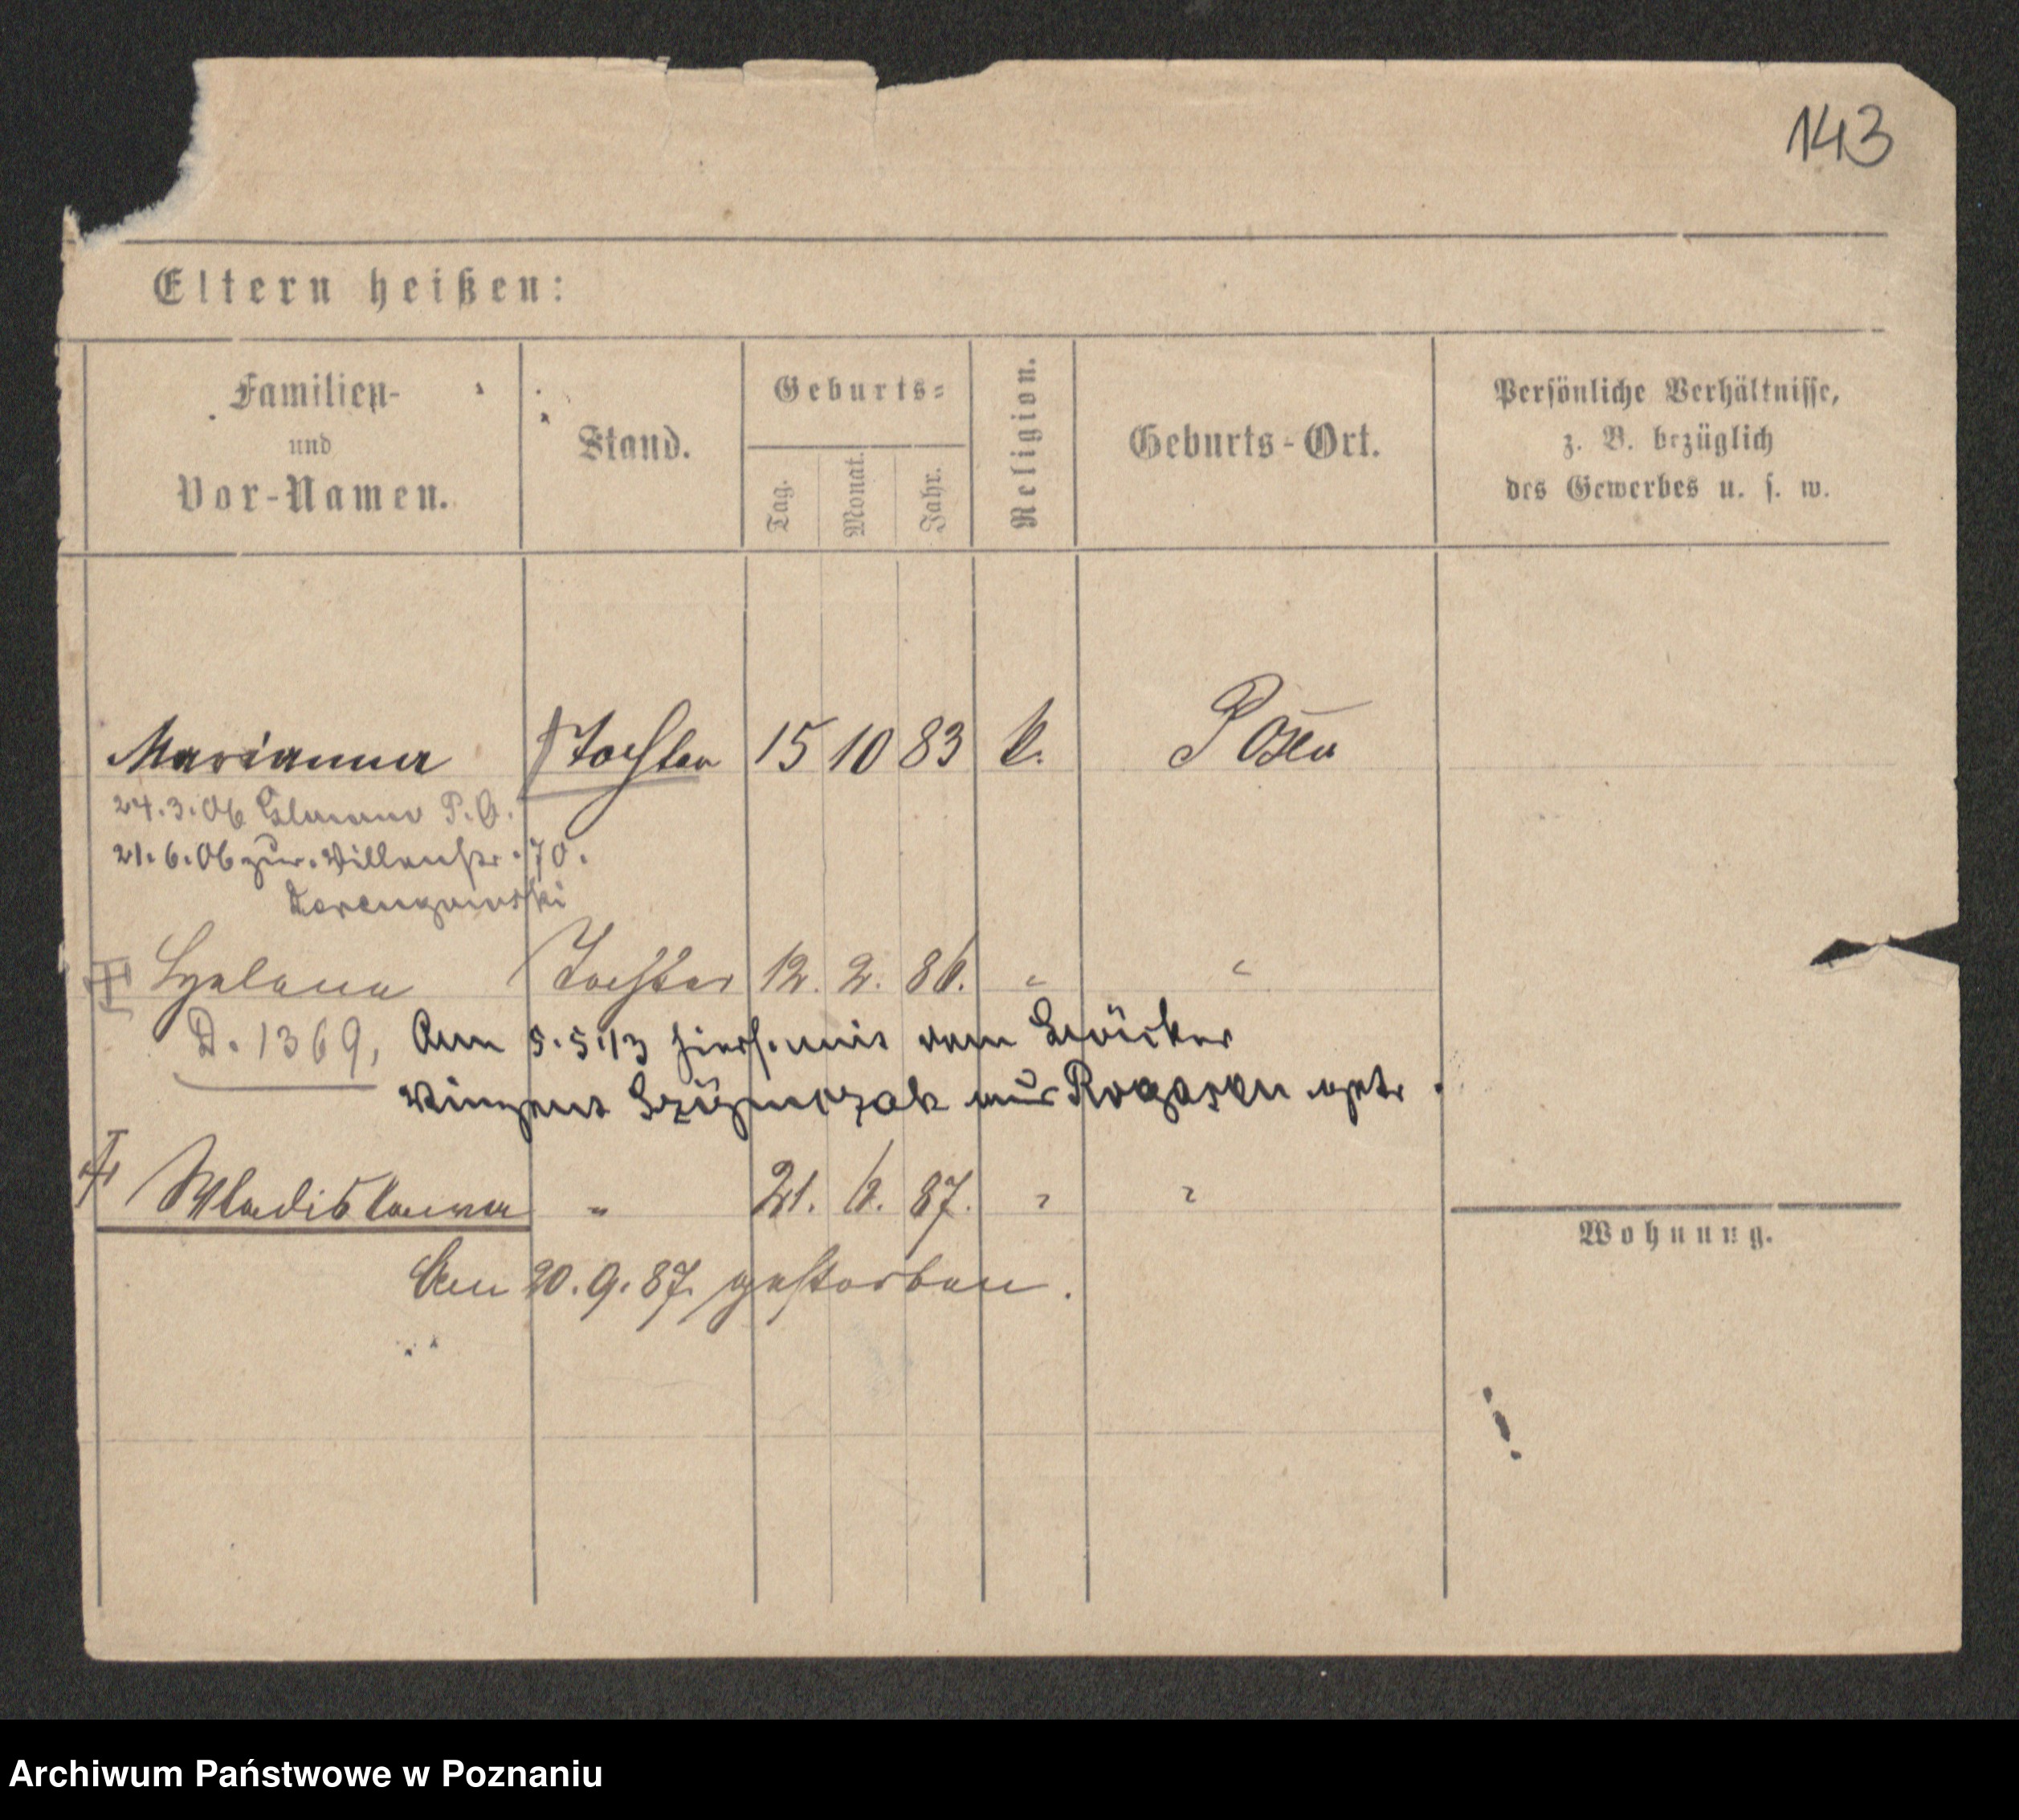 143
Eltern heißen:
Familien-
und
Vor-Namen.
Stand.
Geburts-
Tag.
Monat.
Jahr.
Religion.
Geburts-Ort.
Persönliche Verhältnisse,
z. B. bezüglich
des Gewerbes u. s. w.
Marianna Tochter 15 10 83 k. Posen
24.3.06 P. O.
21.6.06 zur. 70.
Tochter 12. 2. 86. " "
D. 1369, Am 5.5.13 mit dem Bäcker
aus getr.
Wladislawa " 21. 6. 87. " "
Am 20.9.87. gestorben.
Wohnung.
Archiwum Państwowe w Poznaniu